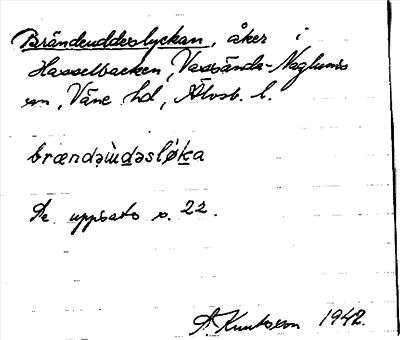 Brändeuddeslyckan, åker i
Hasselbacken, Vassända-Naglums
sn, Väne hd, Älvsb. l.
brændəù̇dəsløka
Se uppsats s. 22.
A. Knutsson 1942.